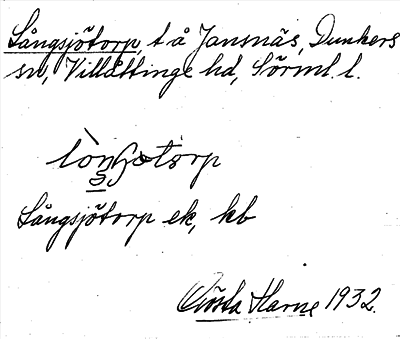 Långsjötorp, t å Jansnäs, Dunkers
sn, Villåttinge hd, Sörml. l.
Långsjötorp ek, kb
Gösta Harne 1932.